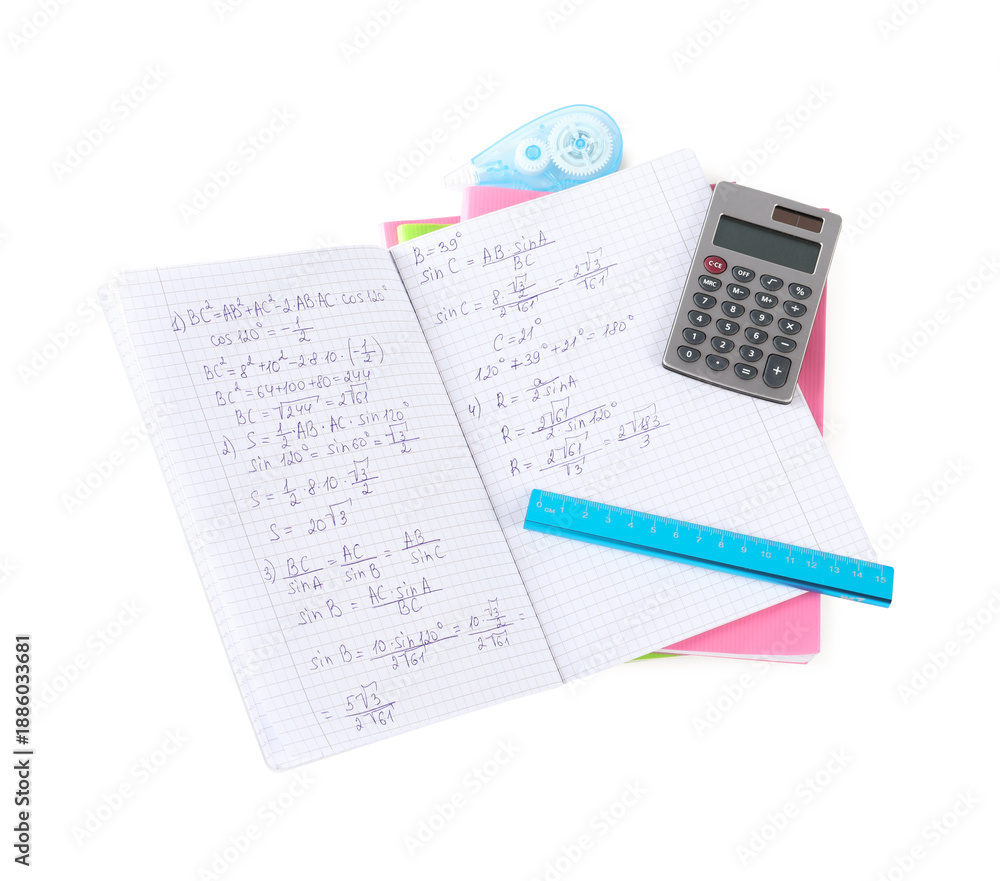 1) BC²=AB²+AC²-2·AB·AC·cos120°
cos120°=-1/2
BC²=8²+10²-2·8·10·(-1/2)
BC²=64+100+80=244
BC=√244=2√61
2) S=1/2·AB·AC·sin120°
sin120°=sin60°=√3/2
S=1/2·8·10·√3/2
S=20√3
3) BC/sinA=AC/sinB=AB/sinC
sinB=AC·sinA/BC
sinB=10·sin120°/2√61=10·√3/2/2√61=
=5√3/2√61
B=39°
sinC=AB·sinA/BC
sinC=8·√3/2/2√61=2√3/√61
C=21°
120°+39°+21°=180°
4) R=a/2sinA
R=2√61/2sin120°
R=2√61/√3=2√183/3
C·CE OFF √ %
MRC M− M+ ÷
7 8 9 ×
4 5 6 −
1 2 3 +
0 · =
0 CM 1 2 3 4 5 6 7 8 9 10 11 12 13 14 15
Adobe Stock | #1886033681